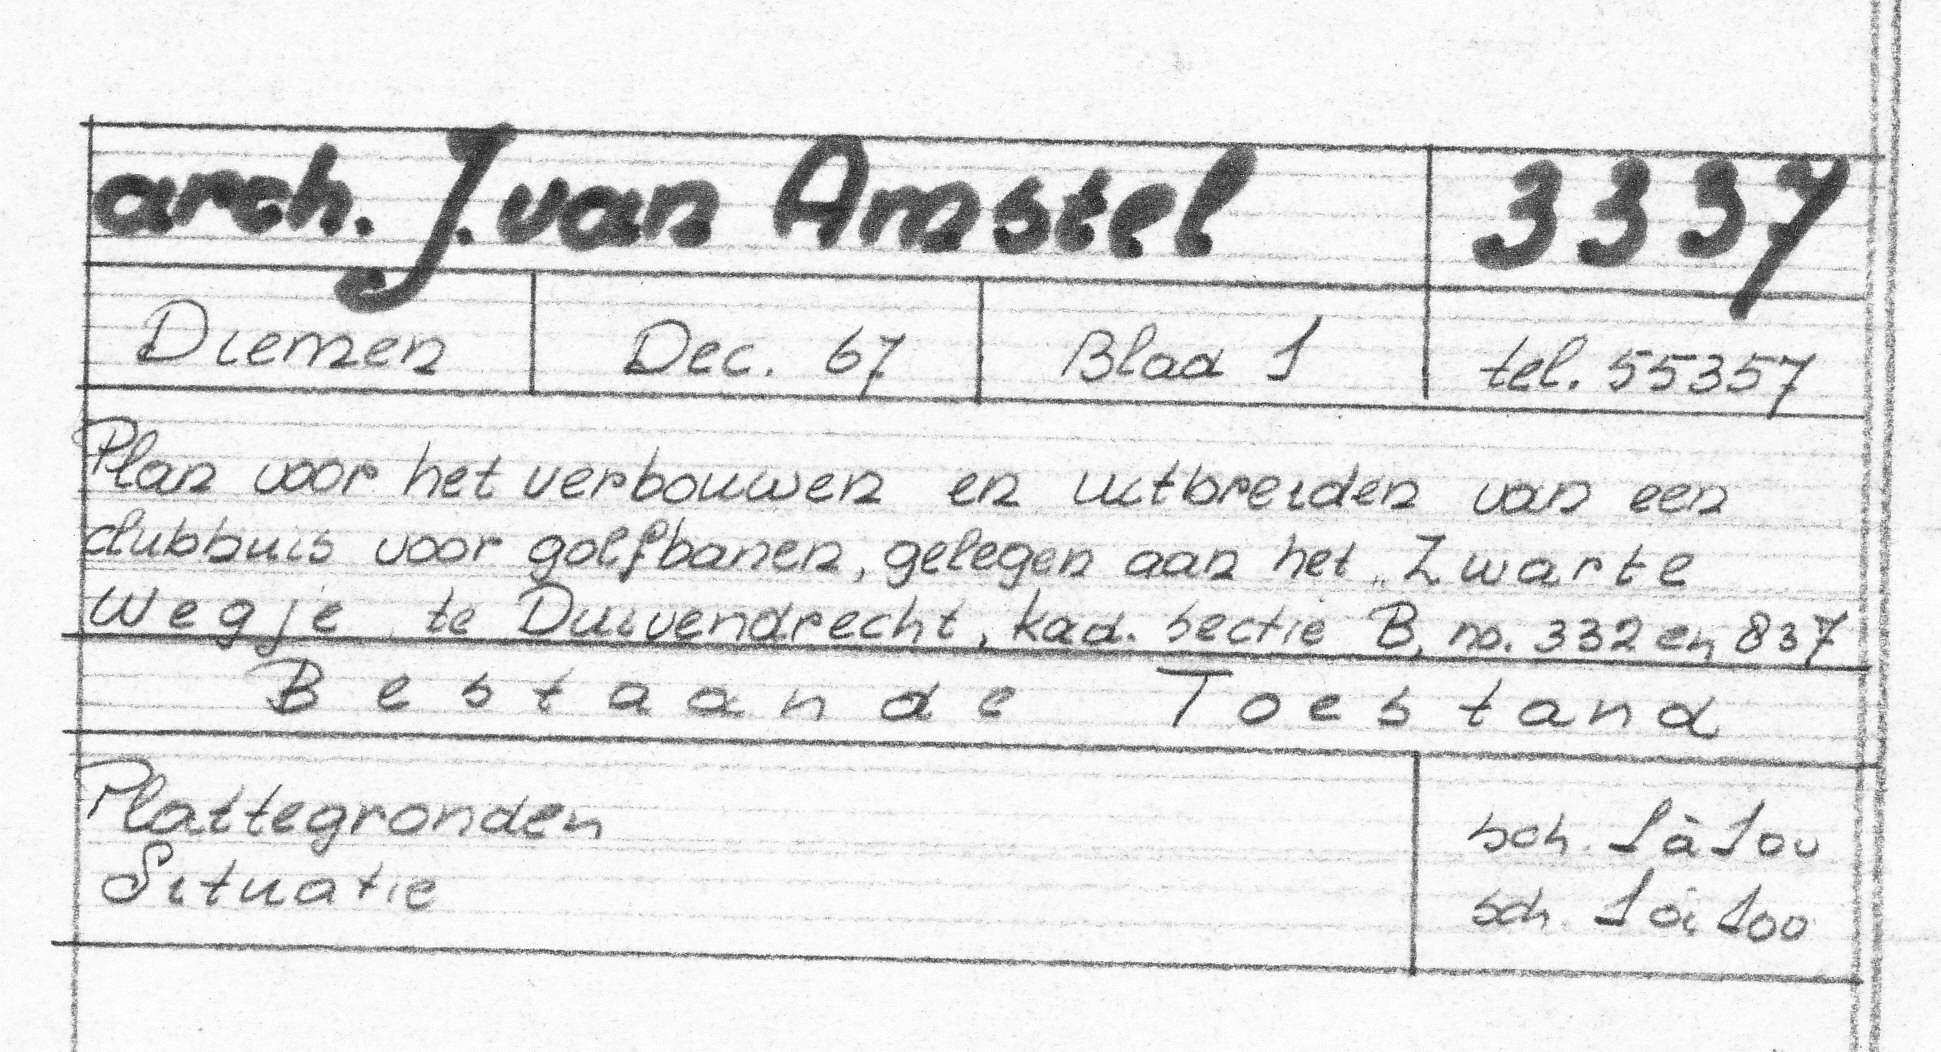 arch. J. van Amstel 3337
Diemen Dec. 67 Blad 1 tel. 55357
Plan voor het verbouwen en uitbreiden van een
clubhuis voor golfbanen, gelegen aan het „Zwarte
Wegje" te Duivendrecht, kad. sectie B, no. 332 en 837
Bestaande Toestand
Plattegronden sch. 1 à 100
Situatie sch. 1 à 100